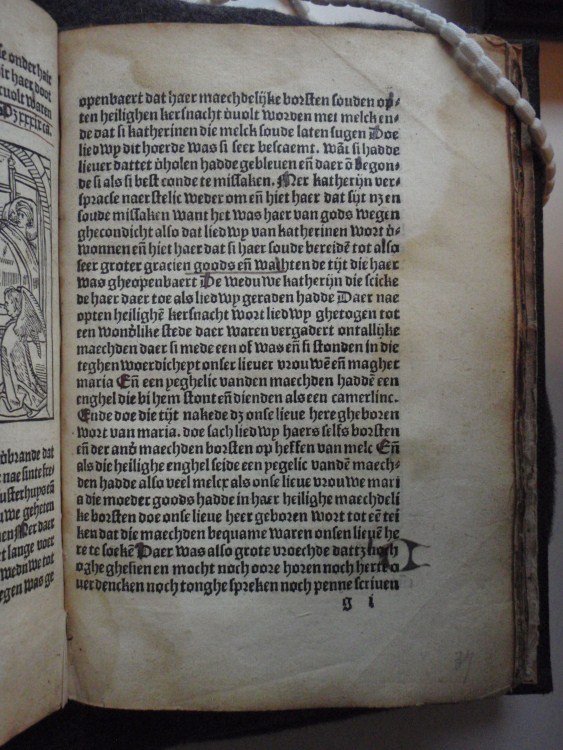 se onder haer
ir haer dout
openbaert dat haer maechdelijke borsten souden op⸗
ten heilighen kersnacht v̄uolt worden met melck en⸗
de dat si katherinen die melck soude laten sugen Doe
lied wy dit hoerde was si seer bescaemt. wāt si hadde
lieuer dattet v̄holen hadde gebleuen eñ daer ō begon⸗
de si als si best conde te missaken. Mer katherijn ver⸗
spracse naerstelic weder om eñ hiet haer dat sijt nz en
soude missaken want het was haer van gods wegen
ghecondicht also dat lied wy van katherinen wort v̄⸗
wonnen eñ hiet haer dat si haer soude bereidē tot also
seer groter gracien goods eñ wachten de tijt die haer
was gheopenbaert De weduwe katherijn die scicke
de haer daer toe als lied wy geraden hadde Daer nae
opten heilighē kersnacht wort lied wy ghetogen tot
een wonv̄like stede daer waren vergadert ontallijke
maechden daer si mede een of was eñ si stonden in die
teghen woerdicheyt onser lieuer vrouwē eñ magher
maria Eñ een peghelic vanden maechden haddē een
enghel die bi hem stont eñ dienden als een camerlinc.
Ende doe die tijt nakede dz onse lieue here gheboren
wort van maria. doe sach lied wy haers selfs borsten
eñ der anv̄ maechden borsten op heffen van melc Eñ
als die heilighe enghel seide een pegelic vandē maech⸗
den hadde also veel melcx als onse lieue vrouwe mari
a die moeder goods hadde in haer heilighe maechdeli
ke borsten doe onse lieue heer geboren wort tot eē tei
ken dat die maechden bequame waren onsen lieuē he
re te soekē Daer was also grote vroechde dattz noch
oghe ghesien en mocht noch oore horen noch herte o
uerdencken noch tonghe spreken noch penne scriuen
g i
v̄brande dat
nae sinte fre⸗
susterhuys eñ
we geheten
en Mer daer
t lange voer
weduwe tot
egen was ge
37